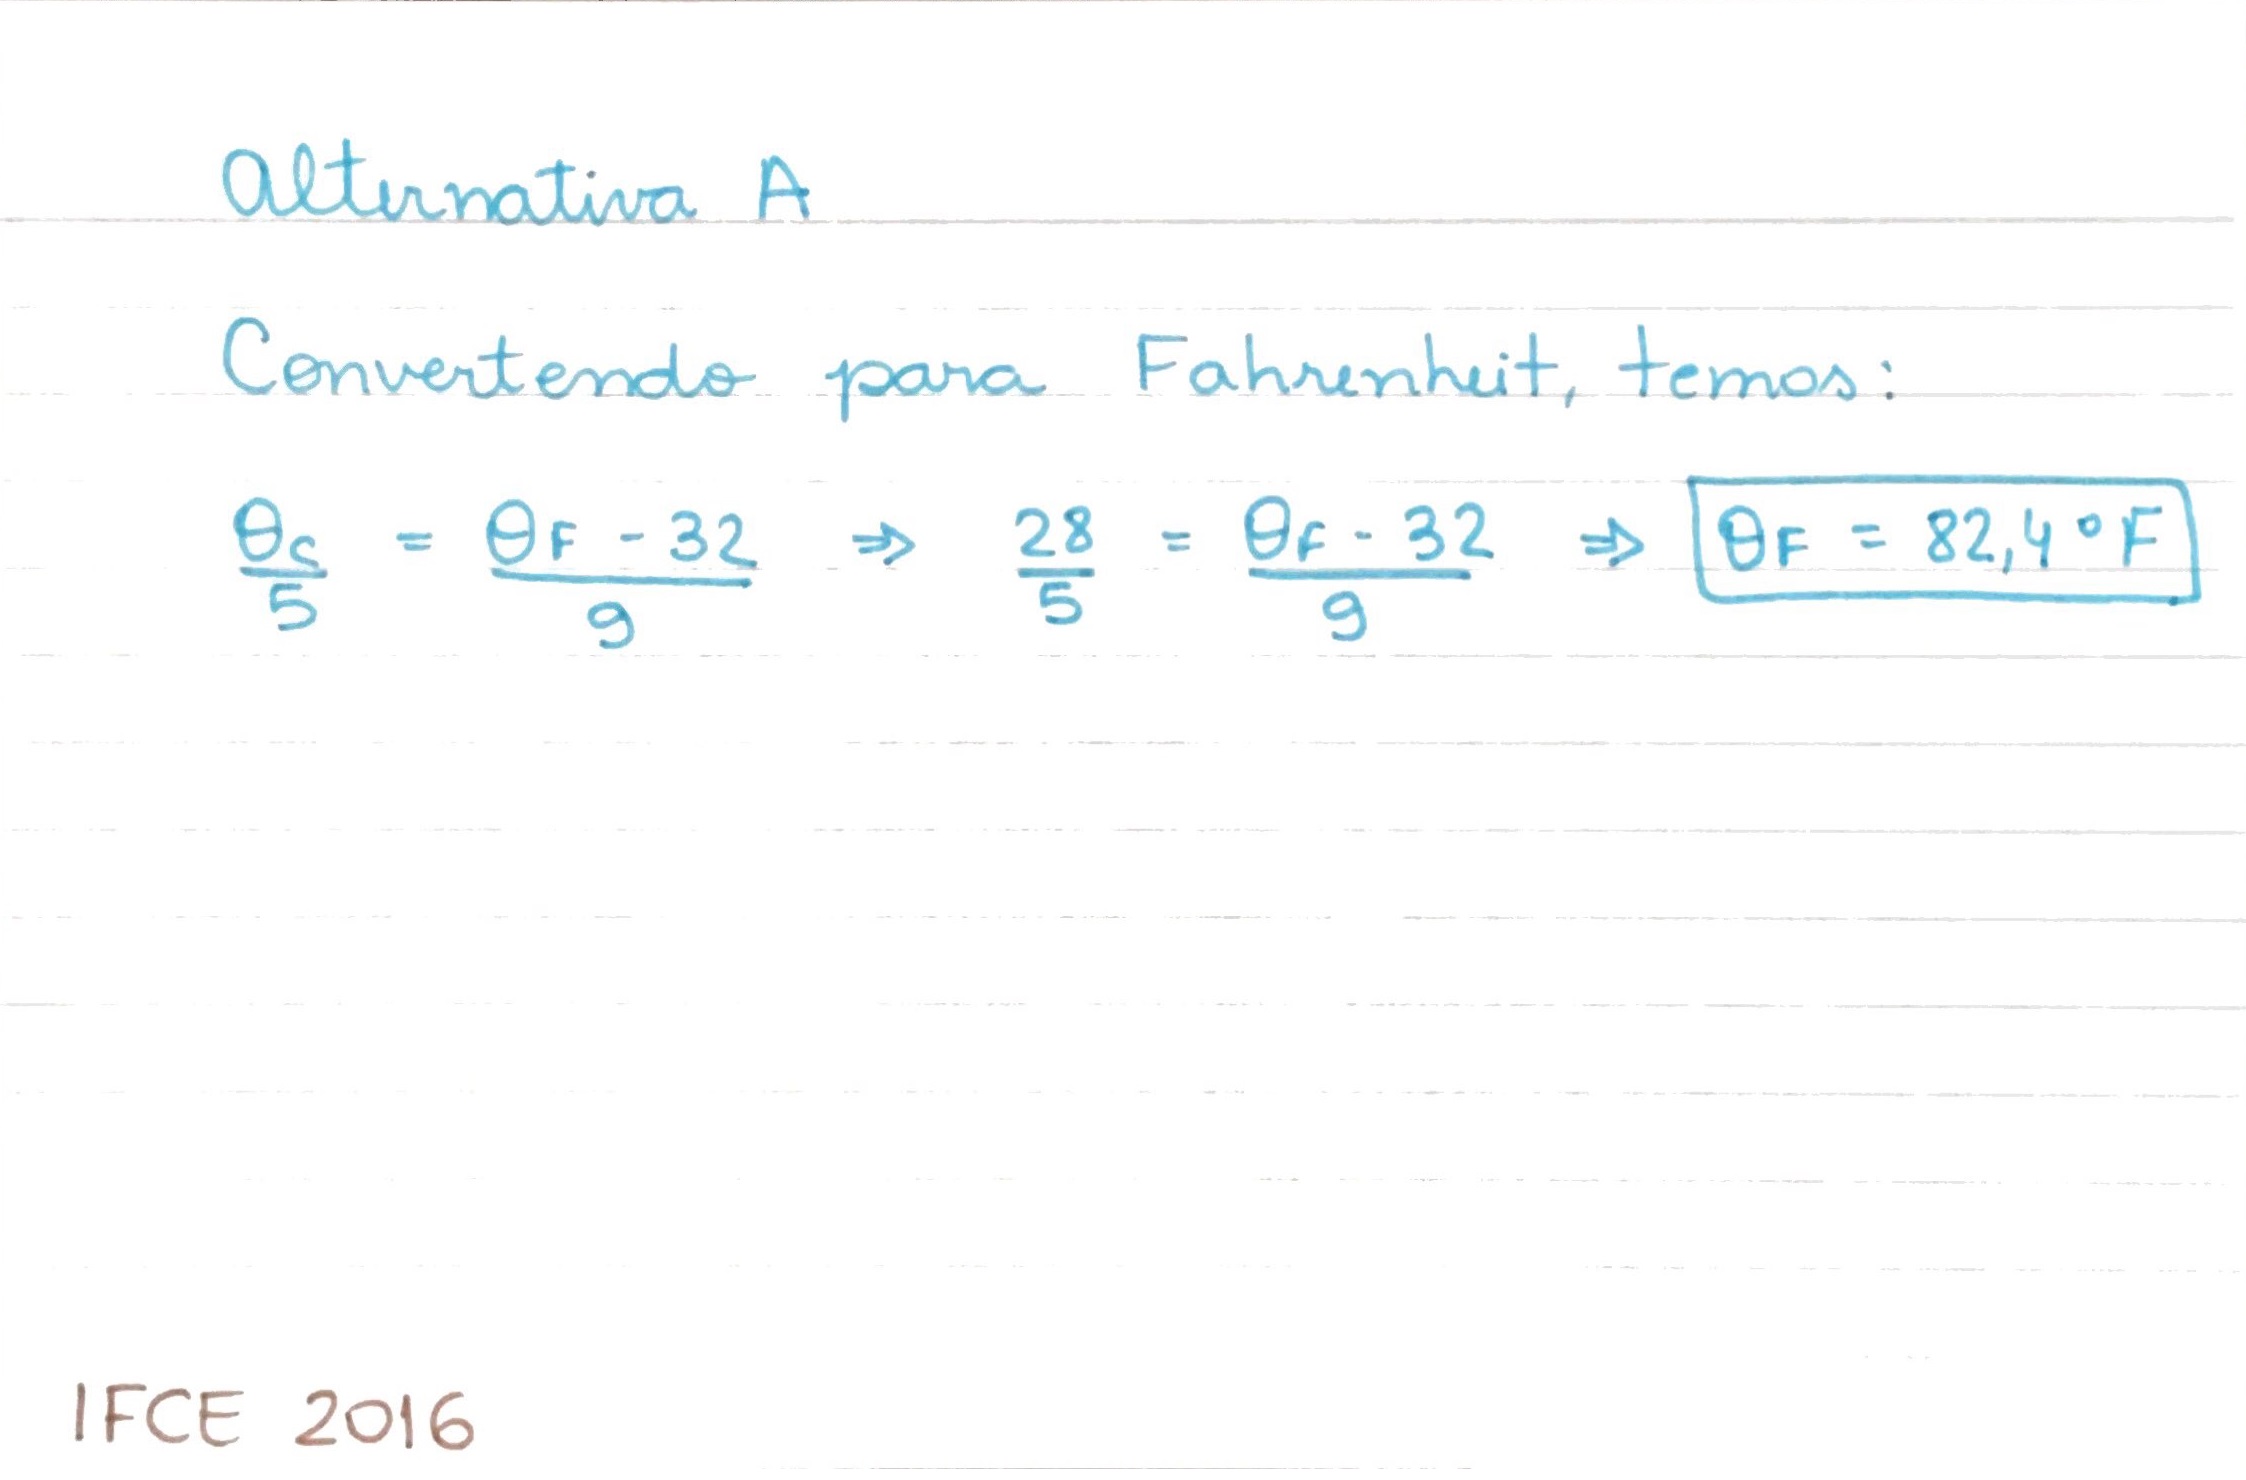 Alternativa A
Convertendo para Fahrenheit, temos:
θc/5 = θF - 32/9 ⇒ 28/5 = θF - 32/9 ⇒ θF = 82,4°F
IFCE 2016